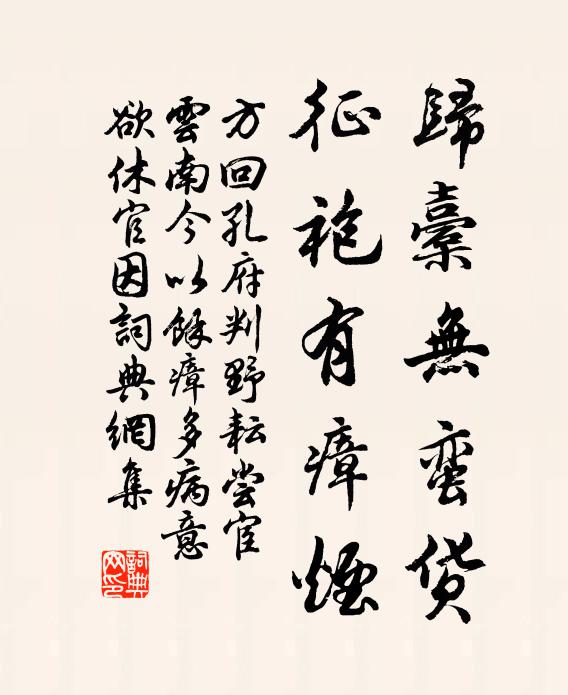 歸橐無蛮货
征袍有瘴煙
方回孔府判野耘尝官
雲南今以餘瘴多病意
欲休官因詞典網集
詞典网印